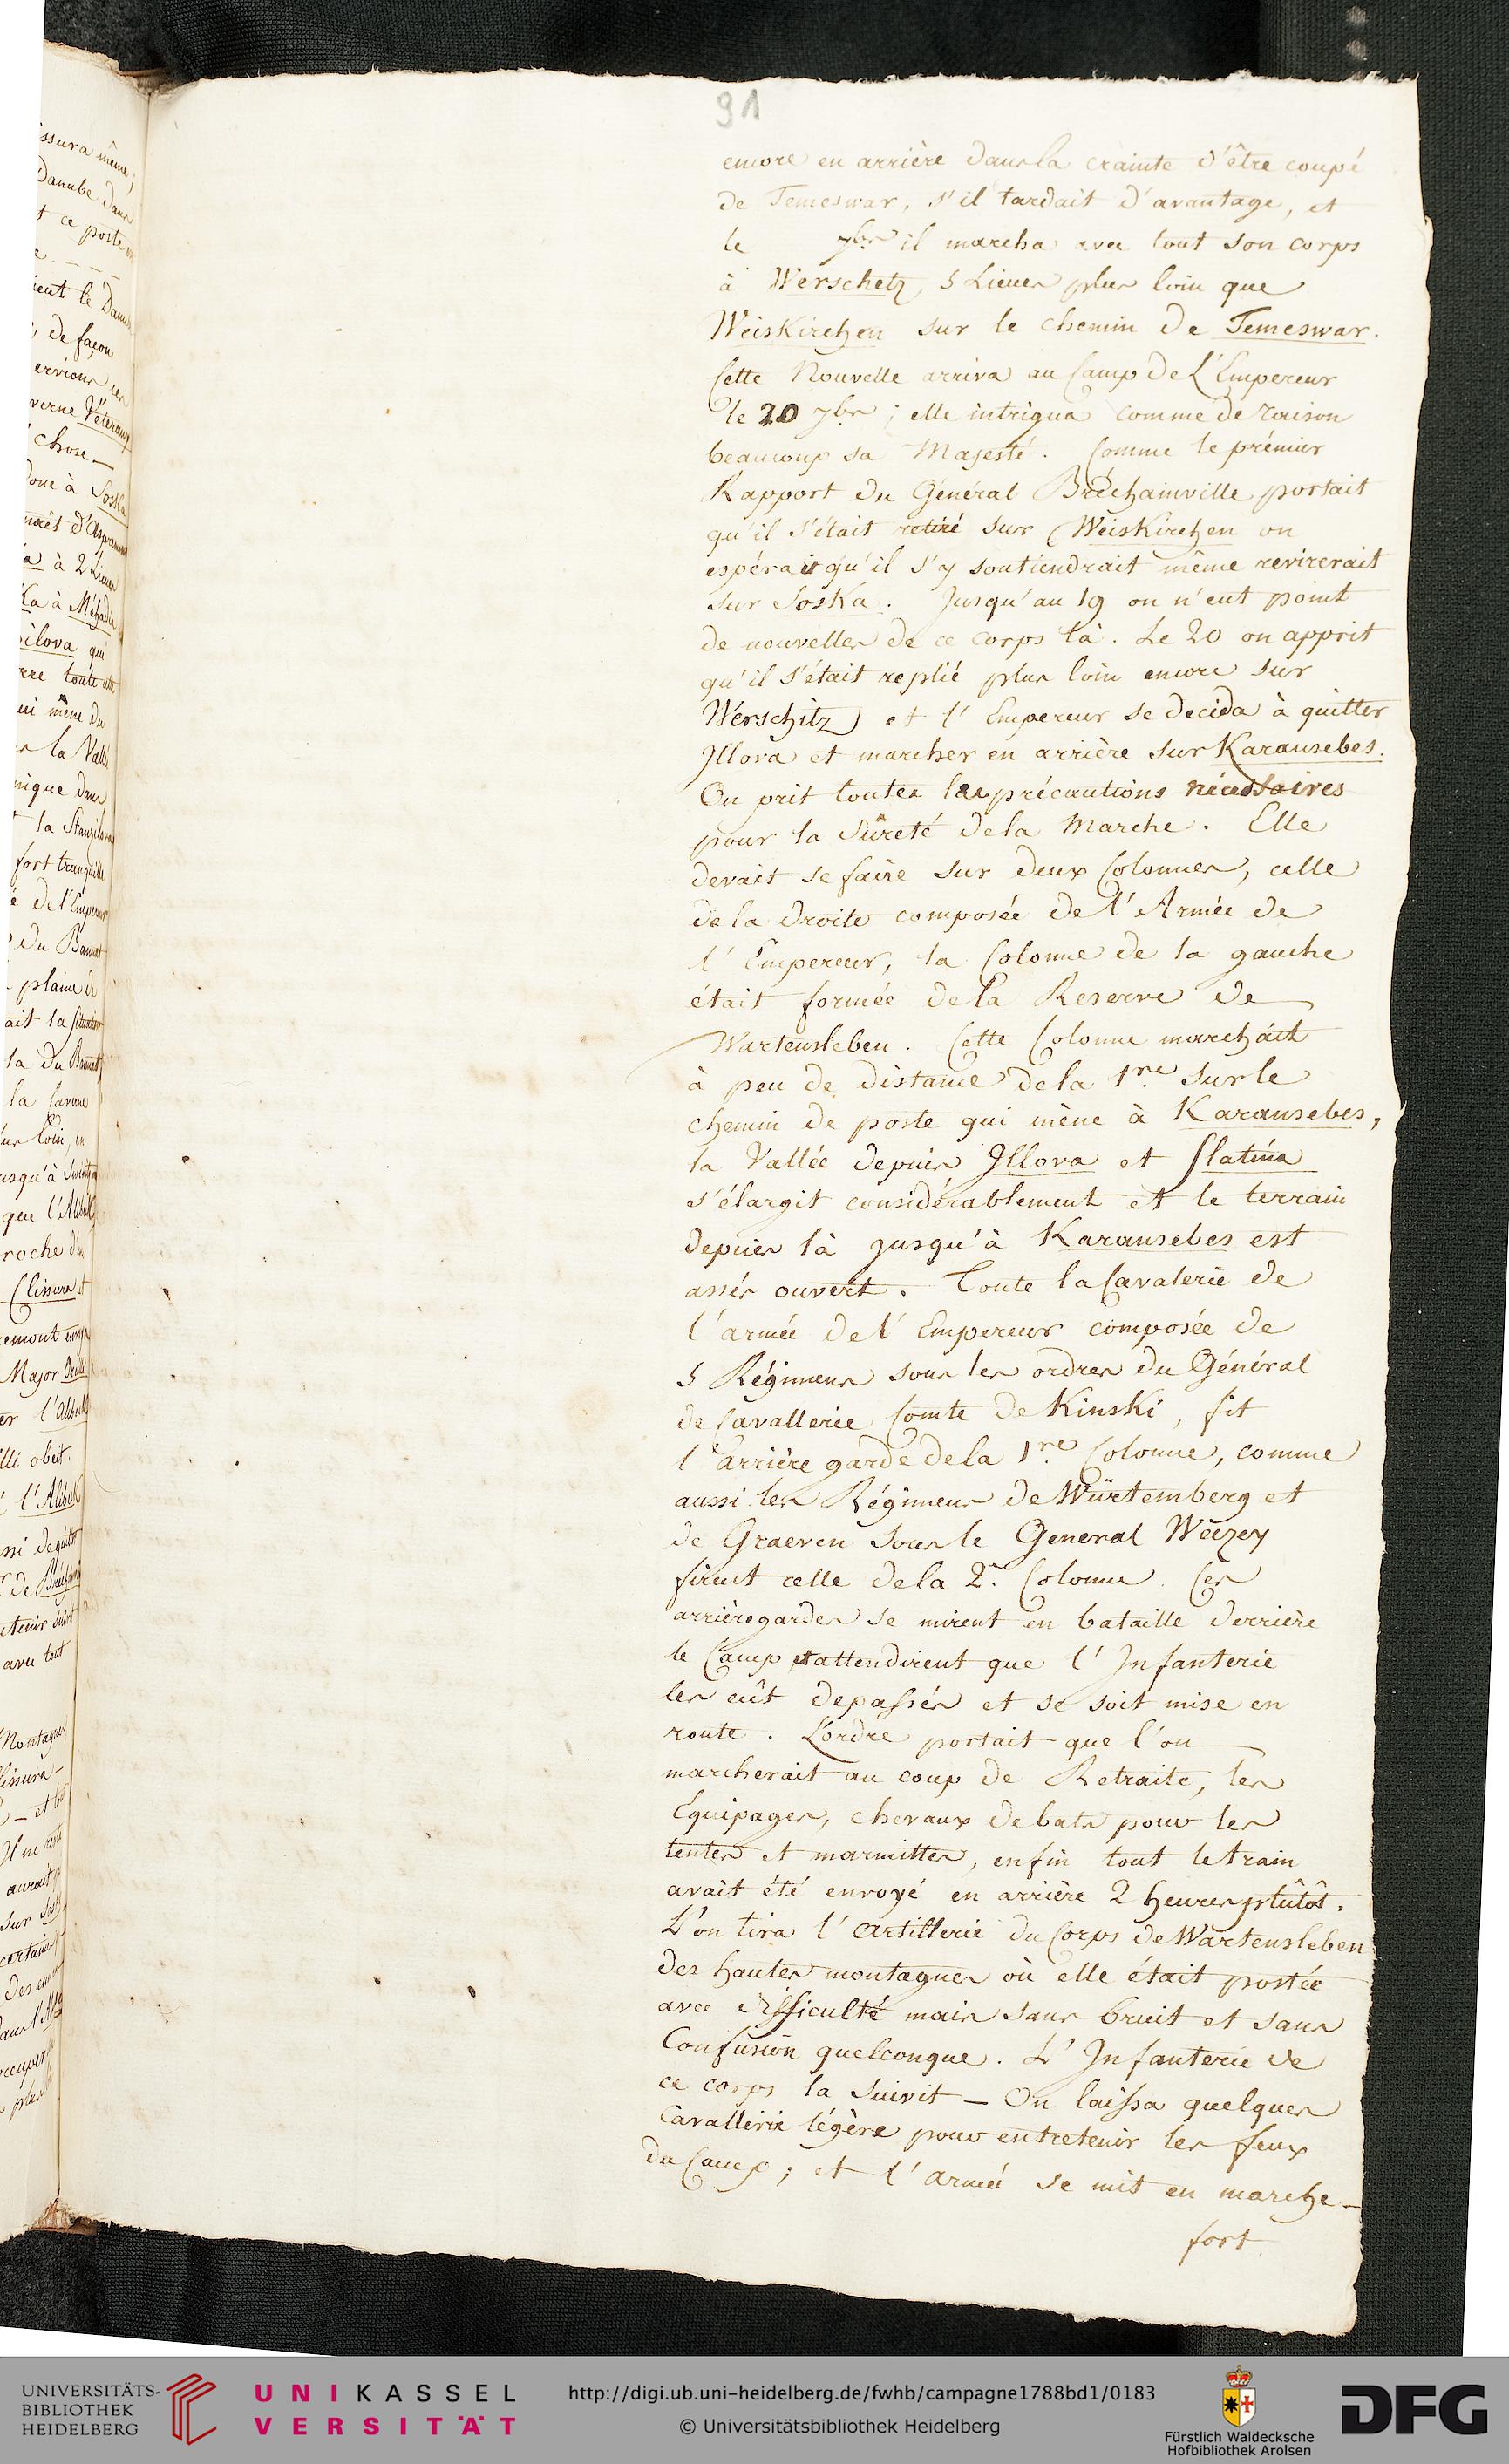 91
encore en arrière dans la crainte d'être coupé
de Temeswar, s'il tardait d'avantage, et
le 7br il marcha avec tout son corps
à Werschetz, 5 Lieues plus loin que
Weiskirchen sur le chemin de Temeswar.
Cette Nouvelle arriva au Camp de L'Empereur
le 20 7br; elle intrigua comme de raison
beaucoup sa Majesté. Comme le prémier
Rapport du Général Bréchainville portait
qu'il s'était retiré sur Weiskirchen on
espérait qu'il s'y soutiendrait même revirerait
sur Soska. Jusqu'au 19 on n'eut point
de nouvelles de ce corps là. Le 20 on apprit
qu'il s'était replié plus loin encore sur
Werschitz et l'Empereur se decida à quitter
Jllova et marcher en arrière sur Karansebes.
On prit toutes les précautions nécessaires
pour la Sûreté de la Marche. Elle
devait se faire sur deux Colonnes, celle
de la Droite composée de l'Armée de
l'Empereur, la Colonne de la gauche
était formée de la Reserve de
Wartensleben. Cette Colonne marchait
à peu de distance de la 1re. sur le
chemin de poste qui mène à Karansebes,
la Vallée depuis Jllova et Slatina
s'élargit considérablement et le terrain
depuis là jusqu'à Karansebes est
assés ouvert. Toute la Cavalerie de
l'armée de l'Empereur composée de
5 Régimens sous les ordres du Général
de Cavallerie Comte de Kinski, fit
l'arrière garde de la 1re. Colonne, comme
aussi les Régimens de Würtemberg et
de Graeven sous le General Weczey
firent celle de la 2e. Colonne. Ces
arrièregardes se mirent en bataille derrière
le Camp et attendirent que l'Infanterie
les eût depassés et se soit mise en
route. L'ordre portait que l'on
marcherait au coup de Retraite, les
Equipages, chevaux de bats pour les
tentes et marmittes, enfin tout le train
avait été envoyé en arrière 2 heures plûtôt.
L'on tira l'artillerie du Corps de Wartensleben
des hautes montagnes où elle était postée
avec difficulté mais sans bruit et sans
Confusion quelconque. L'Infanterie de
ce corps la suivit — On laissa quelques
Cavallerie légère pour entretenir les feux
du Camp; et l'armée se mit en marche —
fort
UNIVERSITÄTS-
BIBLIOTHEK
HEIDELBERG
UNIKASSEL
VERSITÄT
http://digi.ub.uni-heidelberg.de/fwhb/campagne1788bd1/0183
© Universitätsbibliothek Heidelberg
Fürstlich Waldecksche
Hofbibliothek Arolsen
DFG